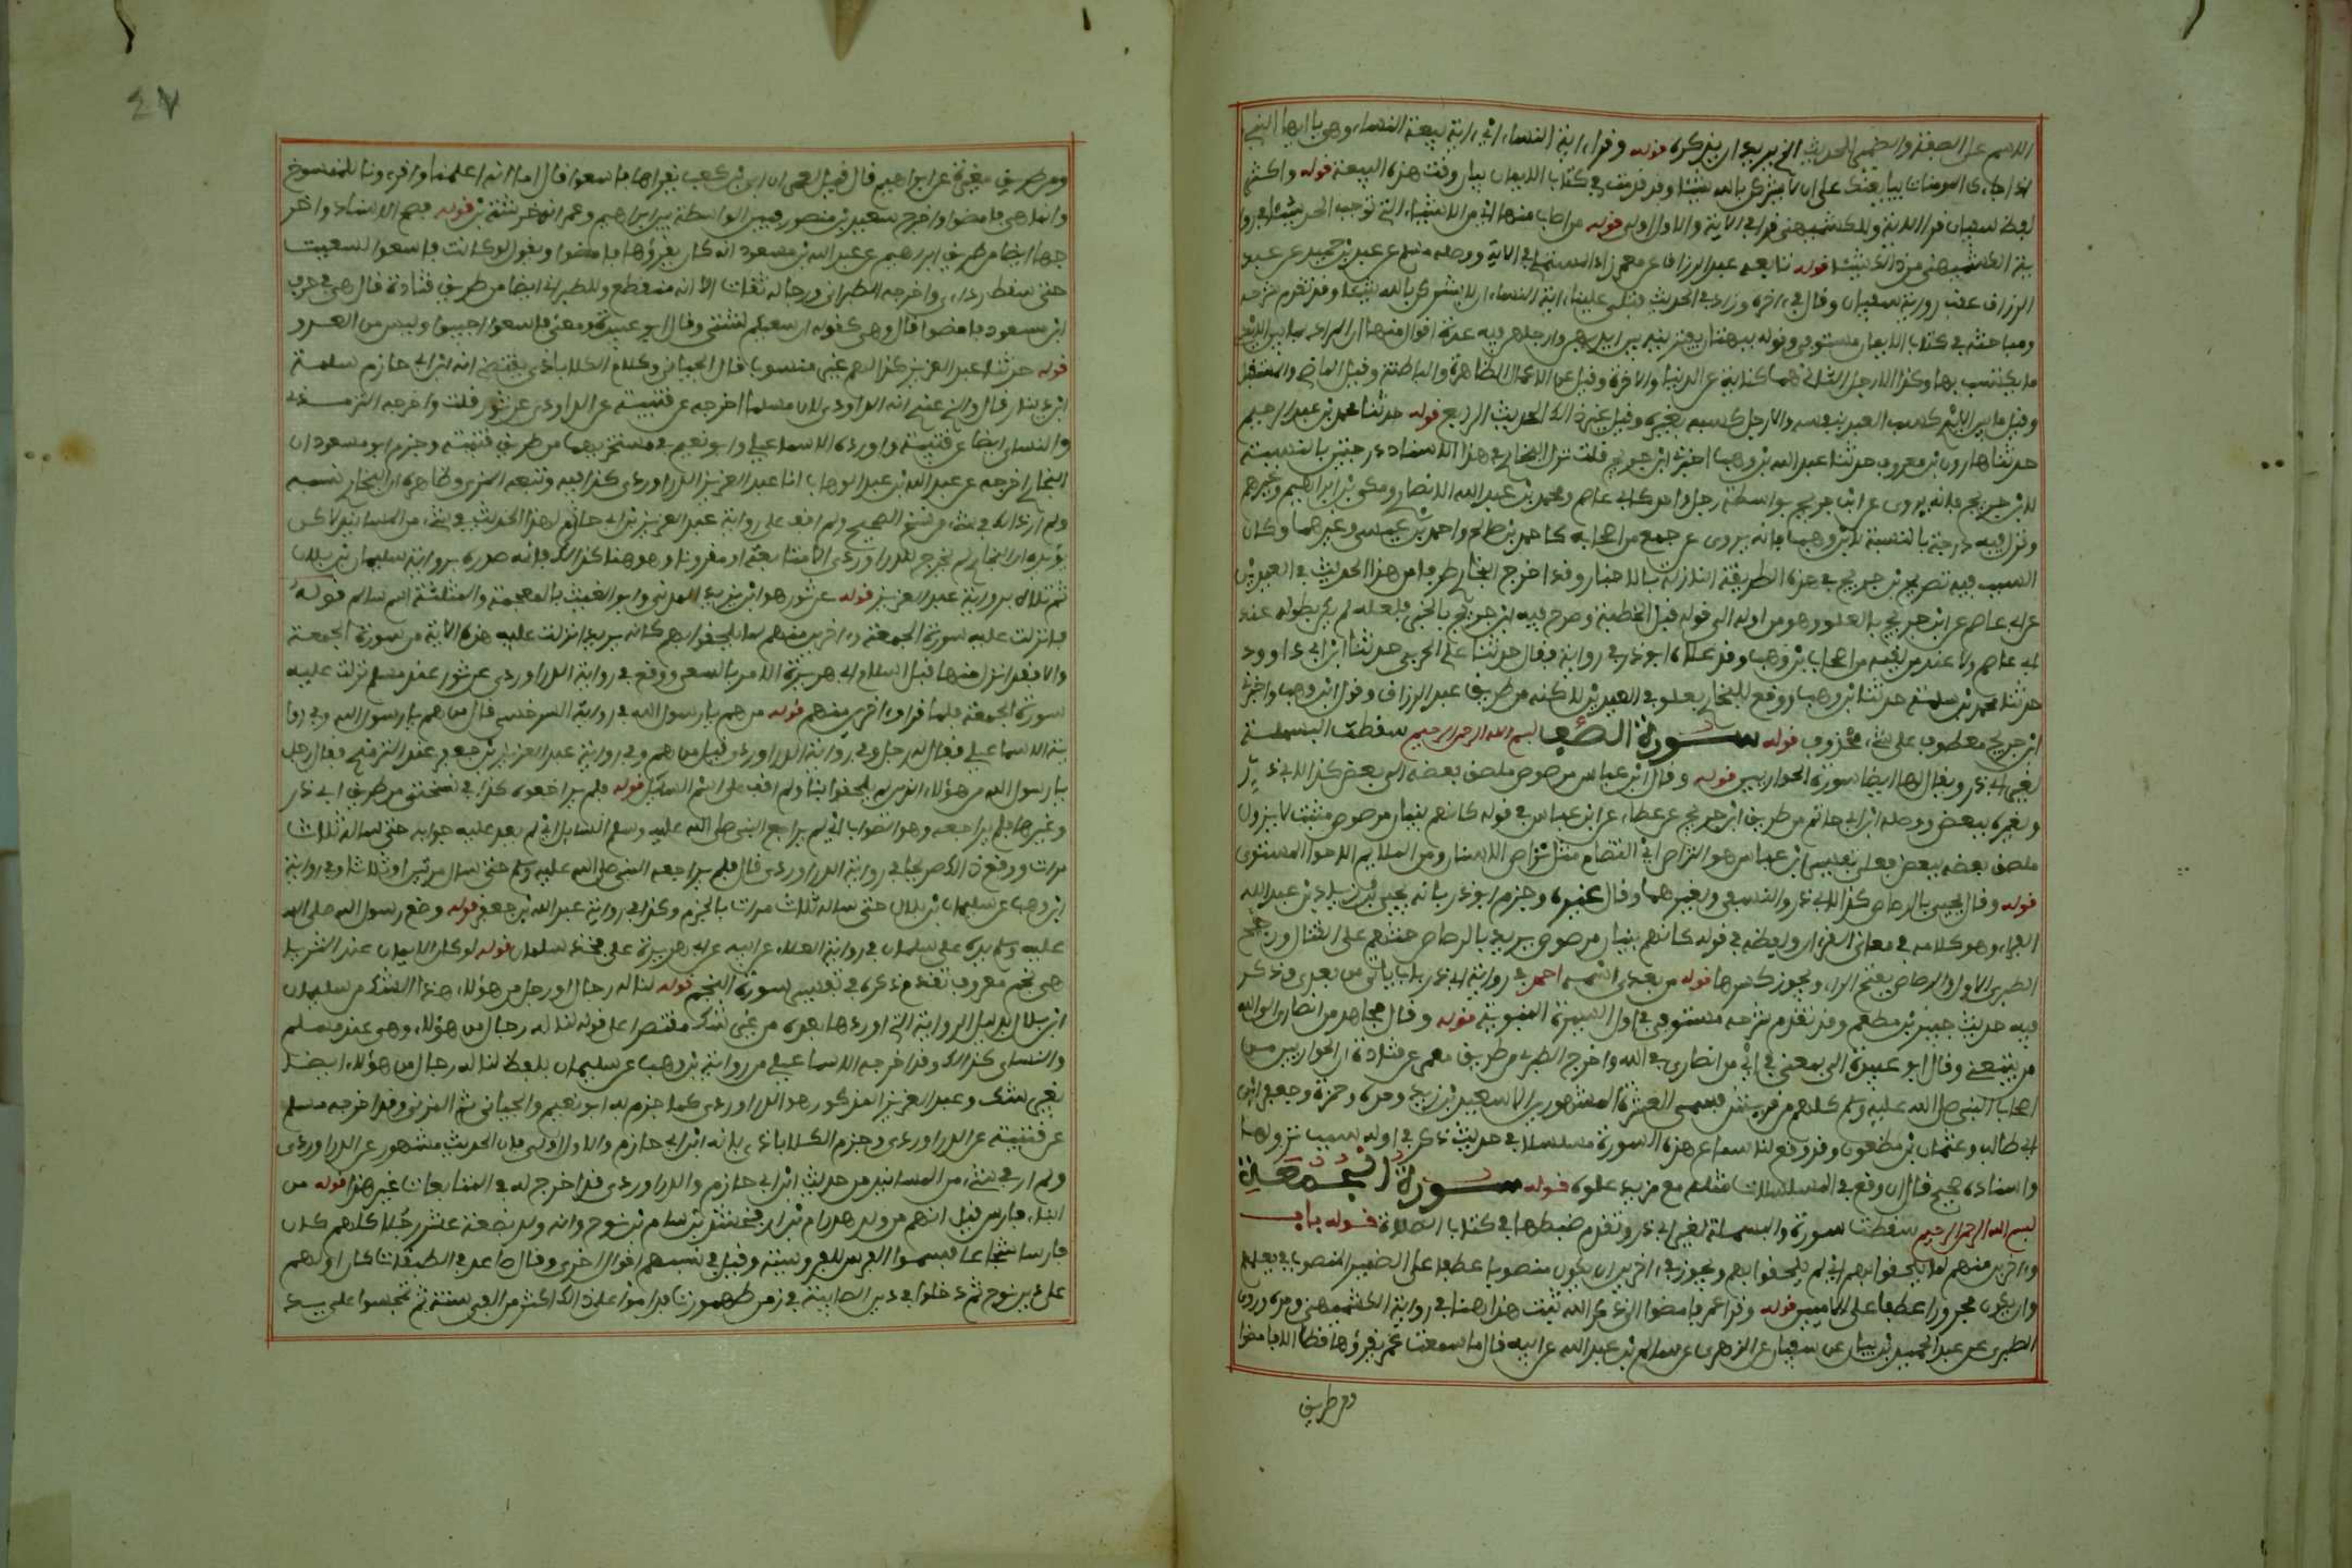 الاسم على الصفة والضمير الحديث الخ يريد ان يذكره قوله وقرا اية النساء اي اية بيعة النساء وهي يا ايها النبي
اذا جاءك المومنات يبايعنك على ان لا يشركن بالله شيئا وقد قدمت في كتاب الايمان بيان وقت هذه البيعة قوله واكثر
لفظ سفيان قرا الاية وللكشميهني قرا في الاية والاول اولى قوله من اصاب منها اي من الاشياء التي توجب الحد شيئا في روا
ية الكشميهني من ذلك شيئا قوله تابعه عبد الرزاق عن معمر زاد المستملي في الاية ووصله مسلم عن عبد بن حميد عن عبد
الرزاق عقب رواية سفيان وقال في اخره وزاد في الحديث فتلى علينا اية النساء ان لا يشركن بالله شيئا وقد تقدم شرحه
ومباحثه في كتاب الايمان مستوفى وقوله ببهتان يفترينه بين ايديهن وارجلهن فيه عدة اقوال منها ان المراد بما بين الايدي
ما يكتسب بها وكذا الارجل الثاني هما كناية عن الدنيا والاخرة وقيل عن الاعمال الظاهرة والباطنة وقيل الماضي والمستقبل
وقيل ما بين الايدي كسب العبد بنفسه والارجل كسبه بغيره وقيل غير ذلك الحديث الرابع قوله حدثنا محمد بن عبد الرحيم
حدثنا هارون بن معروف حدثنا عبد الله بن وهب اخبرني ابن جريج قلت نزل البخاري في هذا الاسناد درجتين بالنسبة
لابن جريج فانه يروي عن ابن جريج بواسطة رجل واحد كابي عاصم ومحمد بن عبد الله الانصاري ومكي بن ابراهيم وغيرهم
ونزل فيه درجة بالنسبة لابن وهب فانه يروي عن جمع من اصحابه كاحمد بن صالح واحمد بن عيسى وغيرهما وكان
السبب فيه تصريح بن جريج في هذه الطريقة النازلة بالاخبار وقد اخرج البخاري طرفا من هذا الحديث في العيدين
عن ابي عاصم عن ابن جريج بالعلو وهو من اوله الى قوله قبل الخطبة وصرح فيه ابن جريج بالخبر فلعله لم يكن بطوله عند
ابي عاصم ولا عند من لقيه من اصحاب بن وهب وقد علاه ابو ذر في روايته فقال حدثنا علي الحربي حدثنا ابن ابي داوود
حدثنا محمد بن سلمة حدثنا بن وهب ووقع للبخاري بعلو في العيدين لاكنه من طريق عبد الرزاق وقول ابن وهب واخبرني
ابن جريج معطوف على شيء محذوف قوله سورة الصف بسم الله الرحمن الرحيم سقطت البسملة
لغير ابي ذر ويقال لها ايضا سورة الحواريين قوله وقال ابن عباس مرصوص ملصق بعضه الى بعض كذا لابي ذر
ولغيره ببعض ووصله ابن ابي حاتم من طريق ابن جريج عن عطاء عن ابن عباس في قوله كانهم بنيان مرصوص مثبت لا يزول
ملصق بعضه ببعض فعلى تفسير ابن عباس هو التراص اي التضام مثل تراص الاسنان ومن الملايم الاجزاء المستوي
قوله وقال يحيى بالرصاص كذا لابي ذر والنسفي ولغيرهما وقال غيره وجزم ابو ذر بانه يحيى بن زياد بن عبد الله
الفراء وهو كلامه في معاني القرءان ولفظه في قوله كانهم بنيان مرصوص يريد بالرصاص حثهم على القتال ورجح
الطبري الاول والرصاص بفتح الراء ويجوز كسرها قوله من بعدي اسمه احمد في رواية ابي ذر باب ياتي من بعدي وذكر
فيه حديث جبير بن مطعم وقد تقدم شرحه مستوفى في اول السيرة النبوية قوله وقال مجاهد من انصاري الى الله
من يتبعني وقال ابو عبيدة الى بمعنى في اي من انصاري في الله واخرج الطبري من طريق معمر عن قتادة ان الحواريين من
اصحاب النبي صلى الله عليه وسلم كلهم من قريش فسمى العشرة المشهورين الا سعيد بن زيد ومره وحمزة وجعفر بن
ابي طالب وعثمان بن مظعون وقد وقع لنا سماع هذه السورة مسلسلا في حديث ذكر في اوله سبب نزولها
واسناده صحيح قل ان وقع في المسلسلات مثله مع مزيد علوه قوله سورة الجمعة
بسم الله الرحمن الرحيم سقطت سورة والبسملة لغير ابي ذر وتقدم ضبطها في كتاب الصلاة قوله باب
واخرين منهم لما يلحقوا بهم اي لم يلحقوا بهم ويجوز في اخرين ان يكون منصوبا عطفا على الضمير المنصوب في يعلمهم
وان يكون مجرورا عطفا على الاميين قوله وقرا عمر فامضوا الى ذكر الله ثبت هذا هنا في رواية الكشميهني وحده وروى
الطبري عن عبد الحميد بن بيان عن سفيان عن الزهري عن سالم بن عبد الله عن ابيه قال ما سمعت عمر يقرؤها قط الا فامضوا
ومن طريق
٤٧
ومن طريق مغيرة عن ابراهيم قال قيل لعمر ان ابي بن كعب يقراها فاسعوا قال اما انه اعلمنا واقرءونا للمنسوخ
وانما هي فامضوا واخرج سعيد بن منصور فبين الواسطة بين ابراهيم وعمر انه خرشة بن قوله فصح الاسناد واخر
جها ايضا من طريق ابراهيم عن عبد الله بن مسعود انه كان يقرؤها فامضوا ويقول لو كانت فاسعوا لسعيت
حتى سقط ردائي واخرجه الطبراني ورجاله ثقات الا انه منقطع وللطبراني ايضا من طريق قتادة قال هي في حرف
ابن مسعود فامضوا قال وهي كقوله ان سعيكم لشتى وقال ابو عبيدة معنى فاسعوا اجيبوا وليس من العدو
قوله حدثنا عبد العزيز كذا لهم غير منسوب قال الجياني وكلام الكلاباذي يقتضي انه ابن ابي حازم سلمة
ابن دينار قال والذي عندي انه الدراوردي لان مسلما اخرجه عن قتيبة عن الدراوردي عن ثور قلت واخرجه الترمذي
والنساي ايضا عن قتيبة واورده الاسماعيلي وابو نعيم في مستخرجيهما من طريق قتيبة وجزم ابو مسعود ان
البخاري اخرجه عن عبد الله بن عبد الوهاب انا عبد العزيز الدراوردي كذا فيه وتبعه المزي وظاهره ان البخاري نسبه
ولم ار ذلك في شيء من نسخ الصحيح ولم اقف على رواية عبد العزيز بن ابي حازم لهذا الحديث في شيء من المسانيد لاكن
يؤيده ان البخاري لم يخرج للدراوردي الا متابعة او مقرونا وهو هنا كذلك فانه صدره برواية سليمان بن بلال
ثم تلاه برواية عبد العزيز قوله عن ثور هو ابن زيد المدني وابو الغيث بالمعجمة والمثلثة اسمه سالم قوله
فانزلت عليه سورة الجمعة واخرين منهم لما يلحقوا بهم كانه يريد انزلت عليه هذه الاية من سورة الجمعة
والا فقد انزل منها قبل اسلام ابي هريرة الامر بالسعي ووقع في رواية الدراوردي عن ثور عند مسلم نزلت عليه
سورة الجمعة فلما قرا واخرين منهم قوله من هم يا رسول الله في رواية السرخسي قال من هم يا رسول الله وفي روا
ية الاسماعيلي فقال له رجل وفي رواية الدراوردي قيل من هم وفي رواية عبد العزيز بن جعفر عند الترمذي فقال رجل
يا رسول الله من هؤلاء الذين لم يلحقوا بنا ولم اقف على اسم السايل قوله فلم يراجعوه كذا في نسختي من طريق ابي ذر
وغيرها فلم يراجعه وهو الصواب اي لم يراجع النبي صلى الله عليه وسلم السايل اي لم يعد عليه جوابه حتى سأله ثلاث
مرات ووقع ذلك صريحا في رواية الدراوردي قال فلم يراجعه النبي صلى الله عليه وسلم حتى سال مرتين او ثلاثا وفي رواية
ابن وهب عن سليمان بن بلال حتى ساله ثلاث مرات بالجزم وكذا في رواية عبد الله بن جعفر قوله وضع رسول الله صلى الله
عليه وسلم يده على سلمان في رواية العلاء عن ابيه عن ابي هريرة على فخذ سلمان قوله لو كان الايمان عند الثريا
هي نجم معروف تقدم ذكره في تفسير سورة النجم قوله لناله رجال او رجل من هؤلاء هذا الشك من سليمان
ابن بلال بدليل الرواية التي اوردها بعده من غير شك مقتصرا على قوله لناله رجال من هؤلاء وهي عند مسلم
والنساي كذلك وقد اخرجه الاسماعيلي من رواية بن وهب عن سليمان بلفظ لناله رجال من هؤلاء ايضا
بغير شك وعبد العزيز المذكور هو الدراوردي كما جزم به ابو نعيم والجياني ثم المزي وقد اخرجه مسلم
عن قتيبة عن الدراوردي وجزم الكلاباذي بانه ابن ابي حازم والاول اولى فان الحديث مشهور عن الدراوردي
ولم ار في شيء من المسانيد من حديث ابن ابي حازم والدراوردي قد اخرج له في المتابعات غير هذا قوله من
ابناء فارس قيل انهم من ولد هدرام بن ارفخشد بن سام بن نوح وانه ولد بضعة عشر رجلا كلهم كان
فارسا شجاعا فسموا الفرس للفروسية وقيل في نسبهم اقوال اخرى وقال صاعد في الطبقات كان اولهم
على دين نوح ثم دخلوا في دين الصابية في زمن طهمورث فداموا على ذلك اكثر من الفي سنة ثم تمجسوا على يد